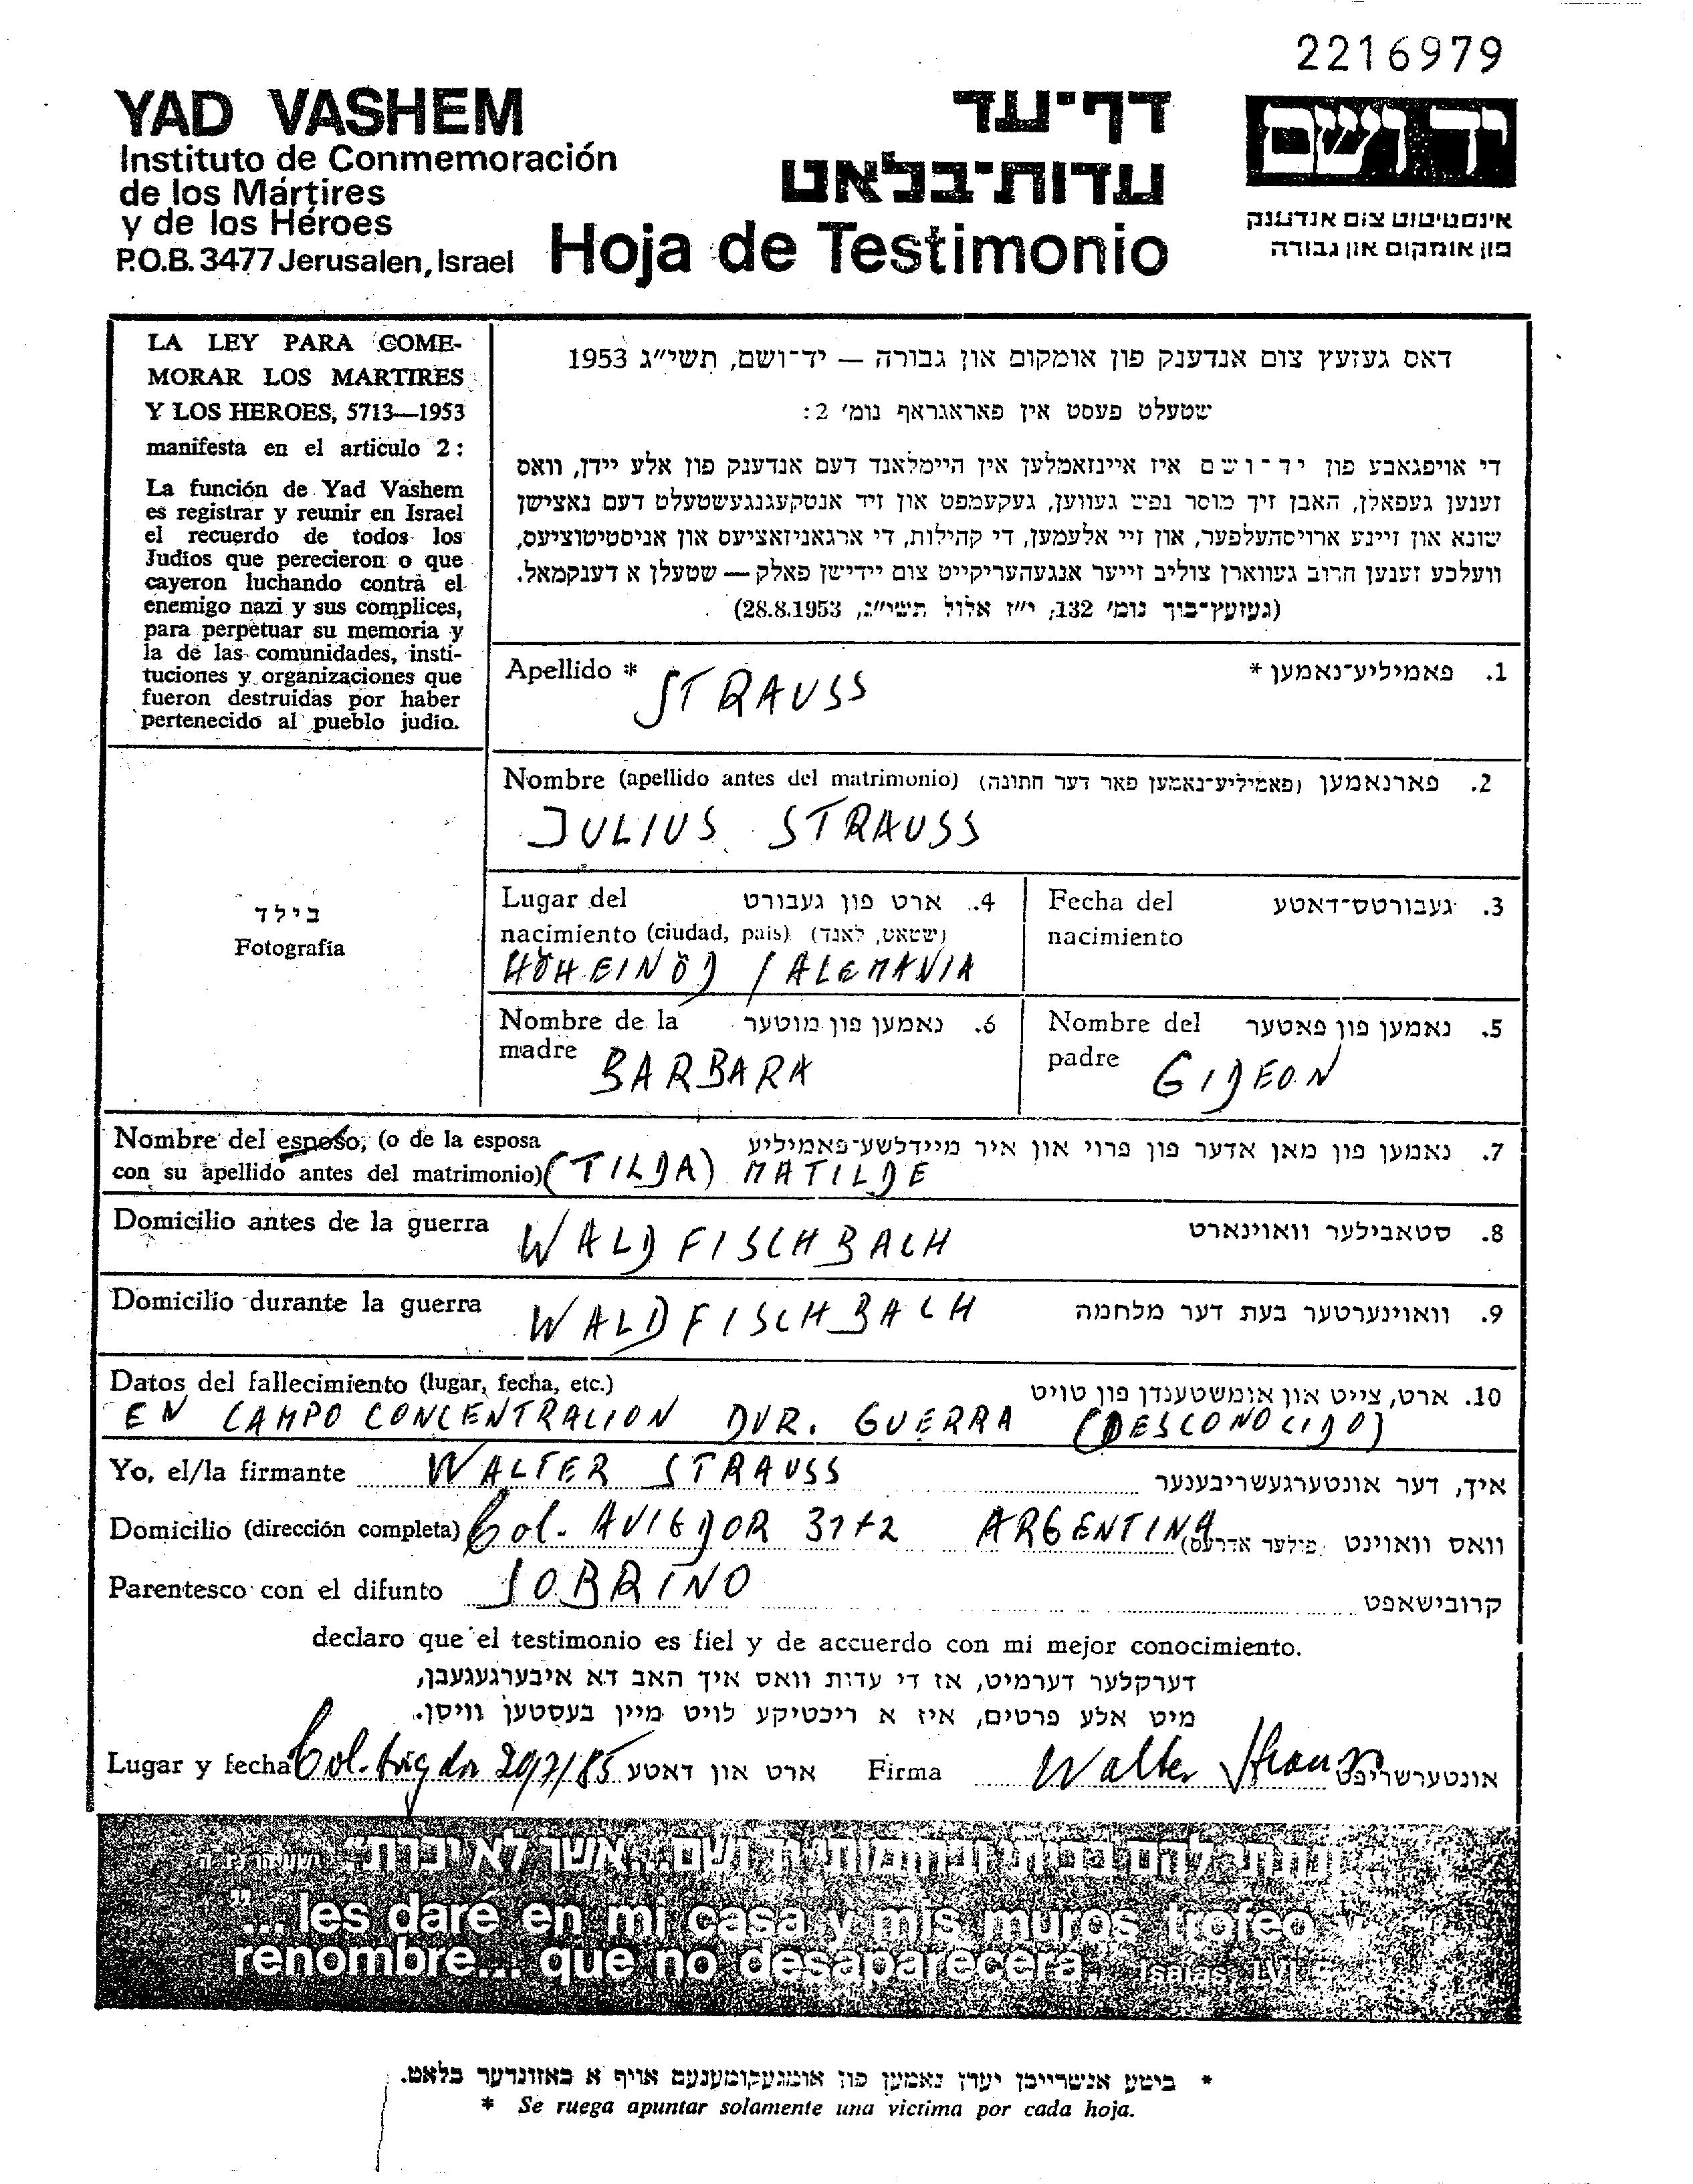 2216979
YAD VASHEM
Instituto de Conmemoración
de los Mártires
y de los Héroes
P.O.B. 3477 Jerusalen, Israel
דף־עד
עדות־בלאט
Hoja de Testimonio
יד ושם
אינסטיטוט צום אנדענק
פון אומקום און גבורה
LA LEY PARA COME-
MORAR LOS MARTIRES
Y LOS HEROES, 5713—1953
manifesta en el articulo 2:
La función de Yad Vashem
es registrar y reunir en Israel
el recuerdo de todos los
Judíos que perecieron o que
cayeron luchando contra el
enemigo nazi y sus complices,
para perpetuar su memoria y
la de las comunidades, insti-
tuciones y organizaciones que
fueron destruidas por haber
pertenecido al pueblo judio.
דאס געזעץ צום אנדענק פון אומקום און גבורה — יד־ושם, תשי״ג 1953
שטעלט פעסט אין פאראגראף נומ׳ 2:
די אויפגאבע פון יד־ושם איז איינזאמלען אין היימלאנד דעם אנדענק פון אלע יידן, וואס
זענען געפאלן, האבן זיך מוסר נפש געווען, געקעמפט און זיך אנטקעגנגעשטעלט דעם נאצישן
שונא און זיינע ארויסהעלפער, און זיי אלעמען, די קהילות, די ארגאניזאציעס און אינסטיטוציעס,
וועלכע זענען חרוב געווארן צוליב זייער אנגעהעריקייט צום יידישן פאלק — שטעלן א דענקמאל.
(געזעץ־בוך נומ׳ 132, י״ז אלול תשי״ג, 28.8.1953)
Apellido * STRAUSS
1. פאמיליע־נאמען *
Nombre (apellido antes del matrimonio) (פאמיליע־נאמען פאר דער חתונה) פארנאמען 2.
JULIUS STRAUSS
בילד
Fotografía
Lugar del ארט פון געבורט 4.
nacimiento (ciudad, pais) (שטאט, לאנד)
HÖHEINÖD / ALEMANIA
Fecha del געבורטס־דאטע 3.
nacimiento
Nombre de la נאמען פון מוטער 6.
madre BARBARA
Nombre del נאמען פון פאטער 5.
padre GIDEON
Nombre del esposo, (o de la esposa נאמען פון מאן אדער פון פרוי און איר מיידלשע־פאמיליע 7.
con su apellido antes del matrimonio) (TILDA) MATILDE
Domicilio antes de la guerra WALDFISCHBACH סטאבילער וואוינארט 8.
Domicilio durante la guerra WALDFISCHBACH וואוינערטער בעת דער מלחמה 9.
Datos del fallecimiento (lugar, fecha, etc.) ארט, צייט און אומשטענדן פון טויט 10.
EN CAMPO CONCENTRACION DUR. GUERRA (DESCONOCIDO)
Yo, el/la firmante WALTER STRAUSS איך, דער אונטערגעשריבענער
Domicilio (dirección completa) Col. AVIGDOR 3142 ARGENTINA (פילער אדרעס) וואס וואוינט
Parentesco con el difunto SOBRINO קרובישאפט
declaro que el testimonio es fiel y de accuerdo con mi mejor conocimiento.
דערקלער דערמיט, אז די עדות וואס איך האב דא איבערגעגעבן,
מיט אלע פרטים, איז א ריכטיקע לויט מיין בעסטען וויסן.
Lugar y fecha Col. Avigdor 29/7/85 ארט און דאטע Firma Walter Strauss אונטערשריפט
"ונתתי להם בביתי ובחומותי יד ושם... אשר לא יכרת" ישעיהו נו, ה
"... les daré en mi casa y mis muros trofeo y
renombre... que no desaparecerá." Isaias LVI 5
* ביטע אנשרייבן יעדן נאמען פון אומגעקומענעם אויף א באזונדער בלאט.
* Se ruega apuntar solamente una victima por cada hoja.